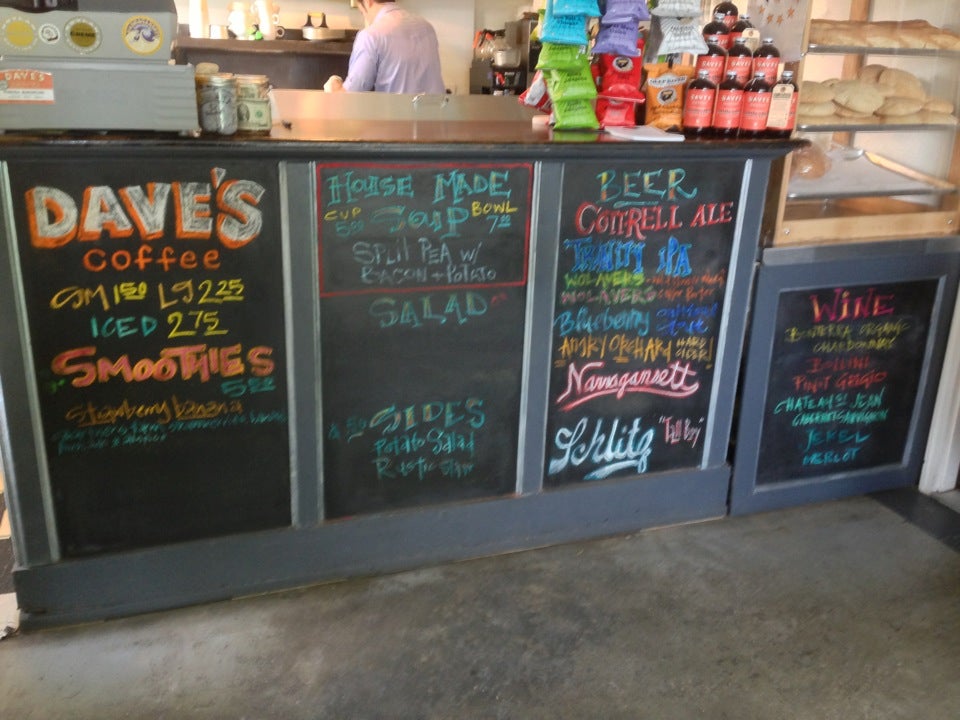 DAVE'S
COFFEE
SM 1.50 LG 2.25
ICED 2.75
SMOOTHIES
5.00
Strawberry banana
HOUSE MADE
CUP SOUP BOWL
5.00 7.00
SPLIT PEA W/
BACON + POTATO
SALAD
SIDES
Potato Salad
Rustic Slaw
BEER
COTTRELL ALE
TRINITY IPA
WOLAVERS
WOLAVERS
Blueberry
ANGRY ORCHARD HARD CIDER!
Narragansett
Schlitz "Tall boy"
WINE
BONTERRA ORGANIC
CHARDONNAY
BOLLINI
PINOT GRIGIO
CHATEAU ST JEAN
CABERNET SAUVIGNON
JEKEL
MERLOT
DAVE'S
DAVE'S